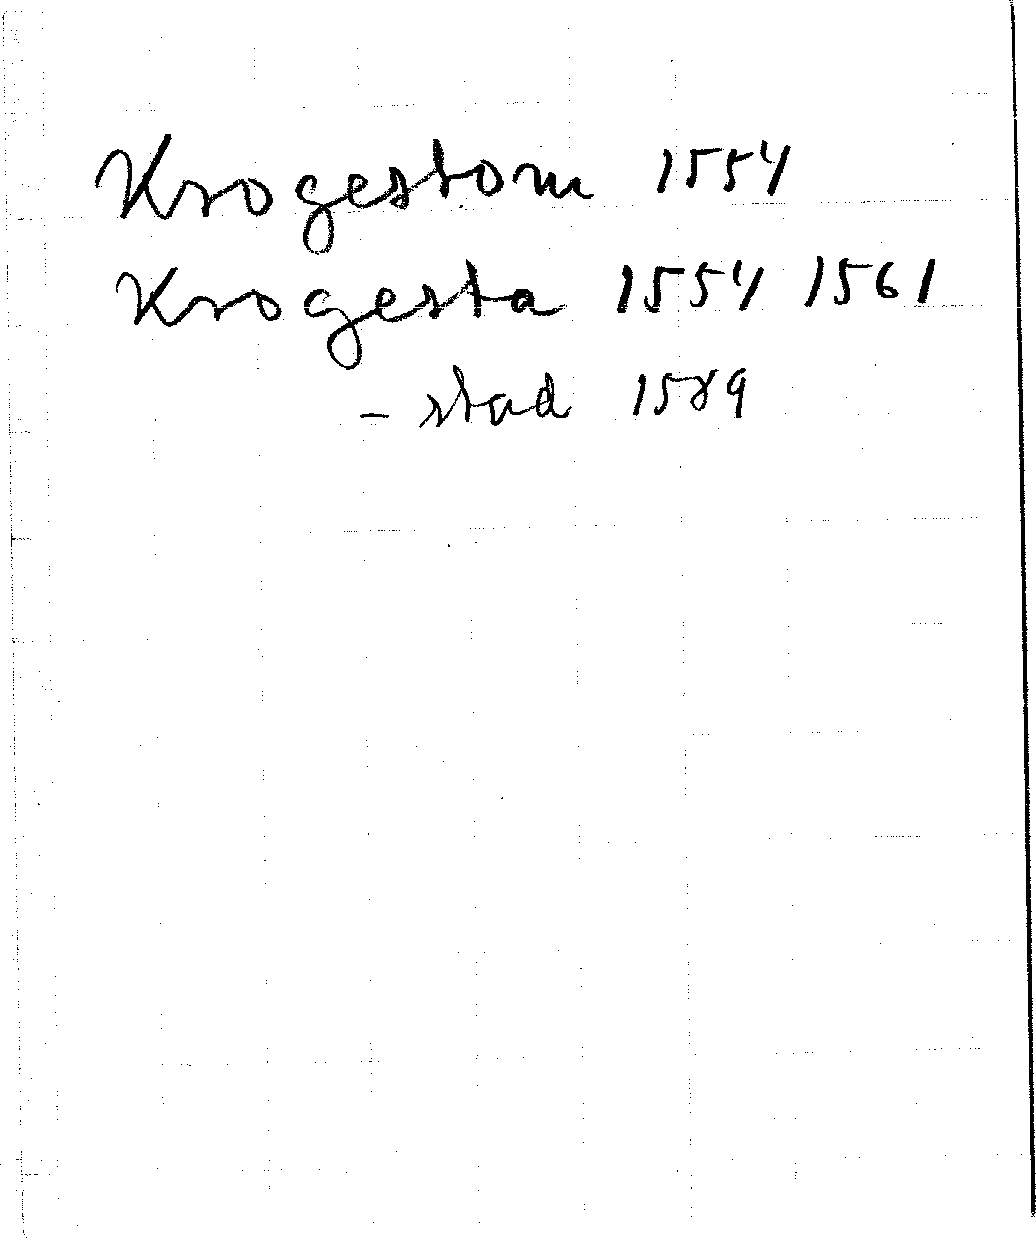 Krogestom 1554
Krogesta 1554 1561
- stad 1589